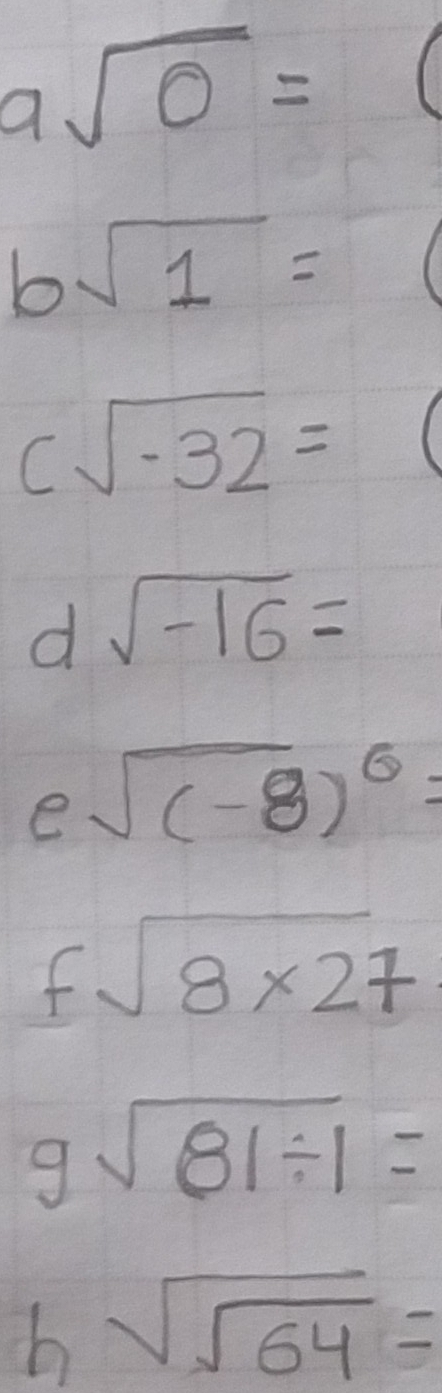 a √0 = (
b √1 = (
c √-32 = (
d √-16 =
e √(-8)⁶ =
f √8×27
g √81÷1 =
h √√64 =